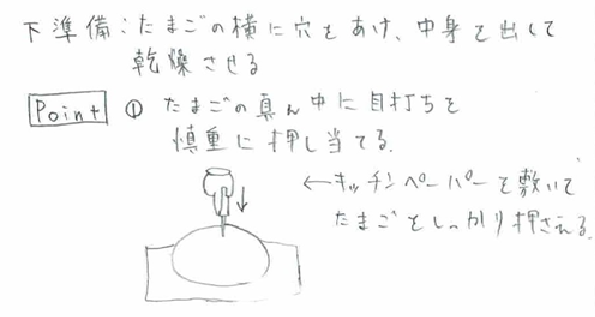 下準備：たまごの横に穴をあけ、中身を出して
乾燥させる
Point ① たまごの真ん中に目打ちを
慎重に押し当てる。
←キッチンペーパーを敷いて
たまごをしっかり押さえる。